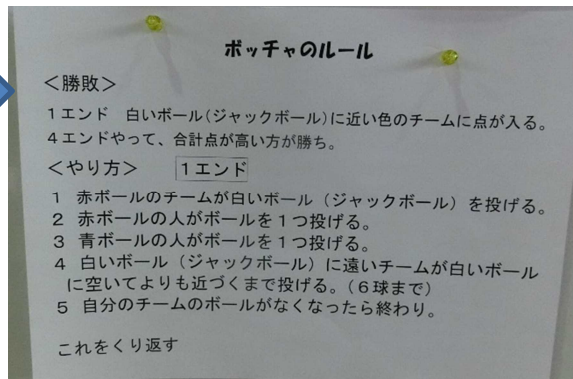 ボッチャのルール
＜勝敗＞
1エンド　白いボール（ジャックボール）に近い色のチームに点が入る。
4エンドやって、合計点が高い方が勝ち。
＜やり方＞　1エンド
1　赤ボールのチームが白いボール（ジャックボール）を投げる。
2　赤ボールの人がボールを1つ投げる。
3　青ボールの人がボールを1つ投げる。
4　白いボール（ジャックボール）に遠いチームが白いボール
に空いてよりも近づくまで投げる。（6球まで）
5　自分のチームのボールがなくなったら終わり。
これをくり返す